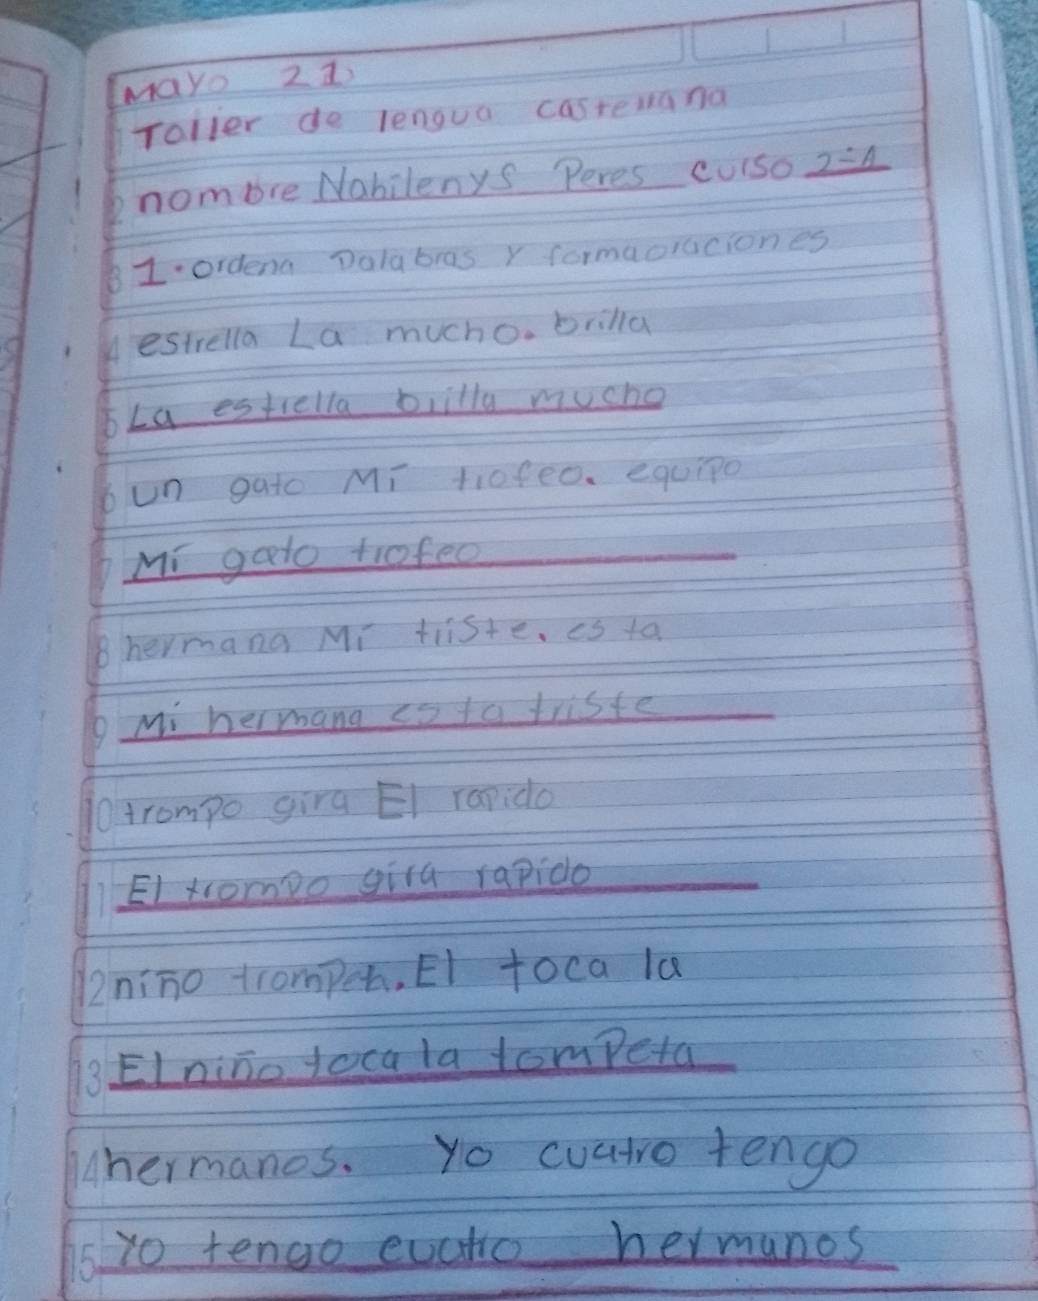 Mayo 21
Taller de lengua castellana
2 nombre Nahilenys Peres curso 2-1
3 1. ordena Palabras y formaoraciones
4 estrella La mucho. brilla
5 La estrella brilla mucho
6 un gato Mi trofeo. equipo
7 Mi gato trofeo
8 hermana Mi triste. esta
9 Mi hermana esta triste
10 trompo gira El rapido
11 El trompo gira rapido
12 niño El toca la
13 El niño toca la tompeta
14 hermanos. Yo cuatro tengo
15 Yo tengo cuatro hermanos